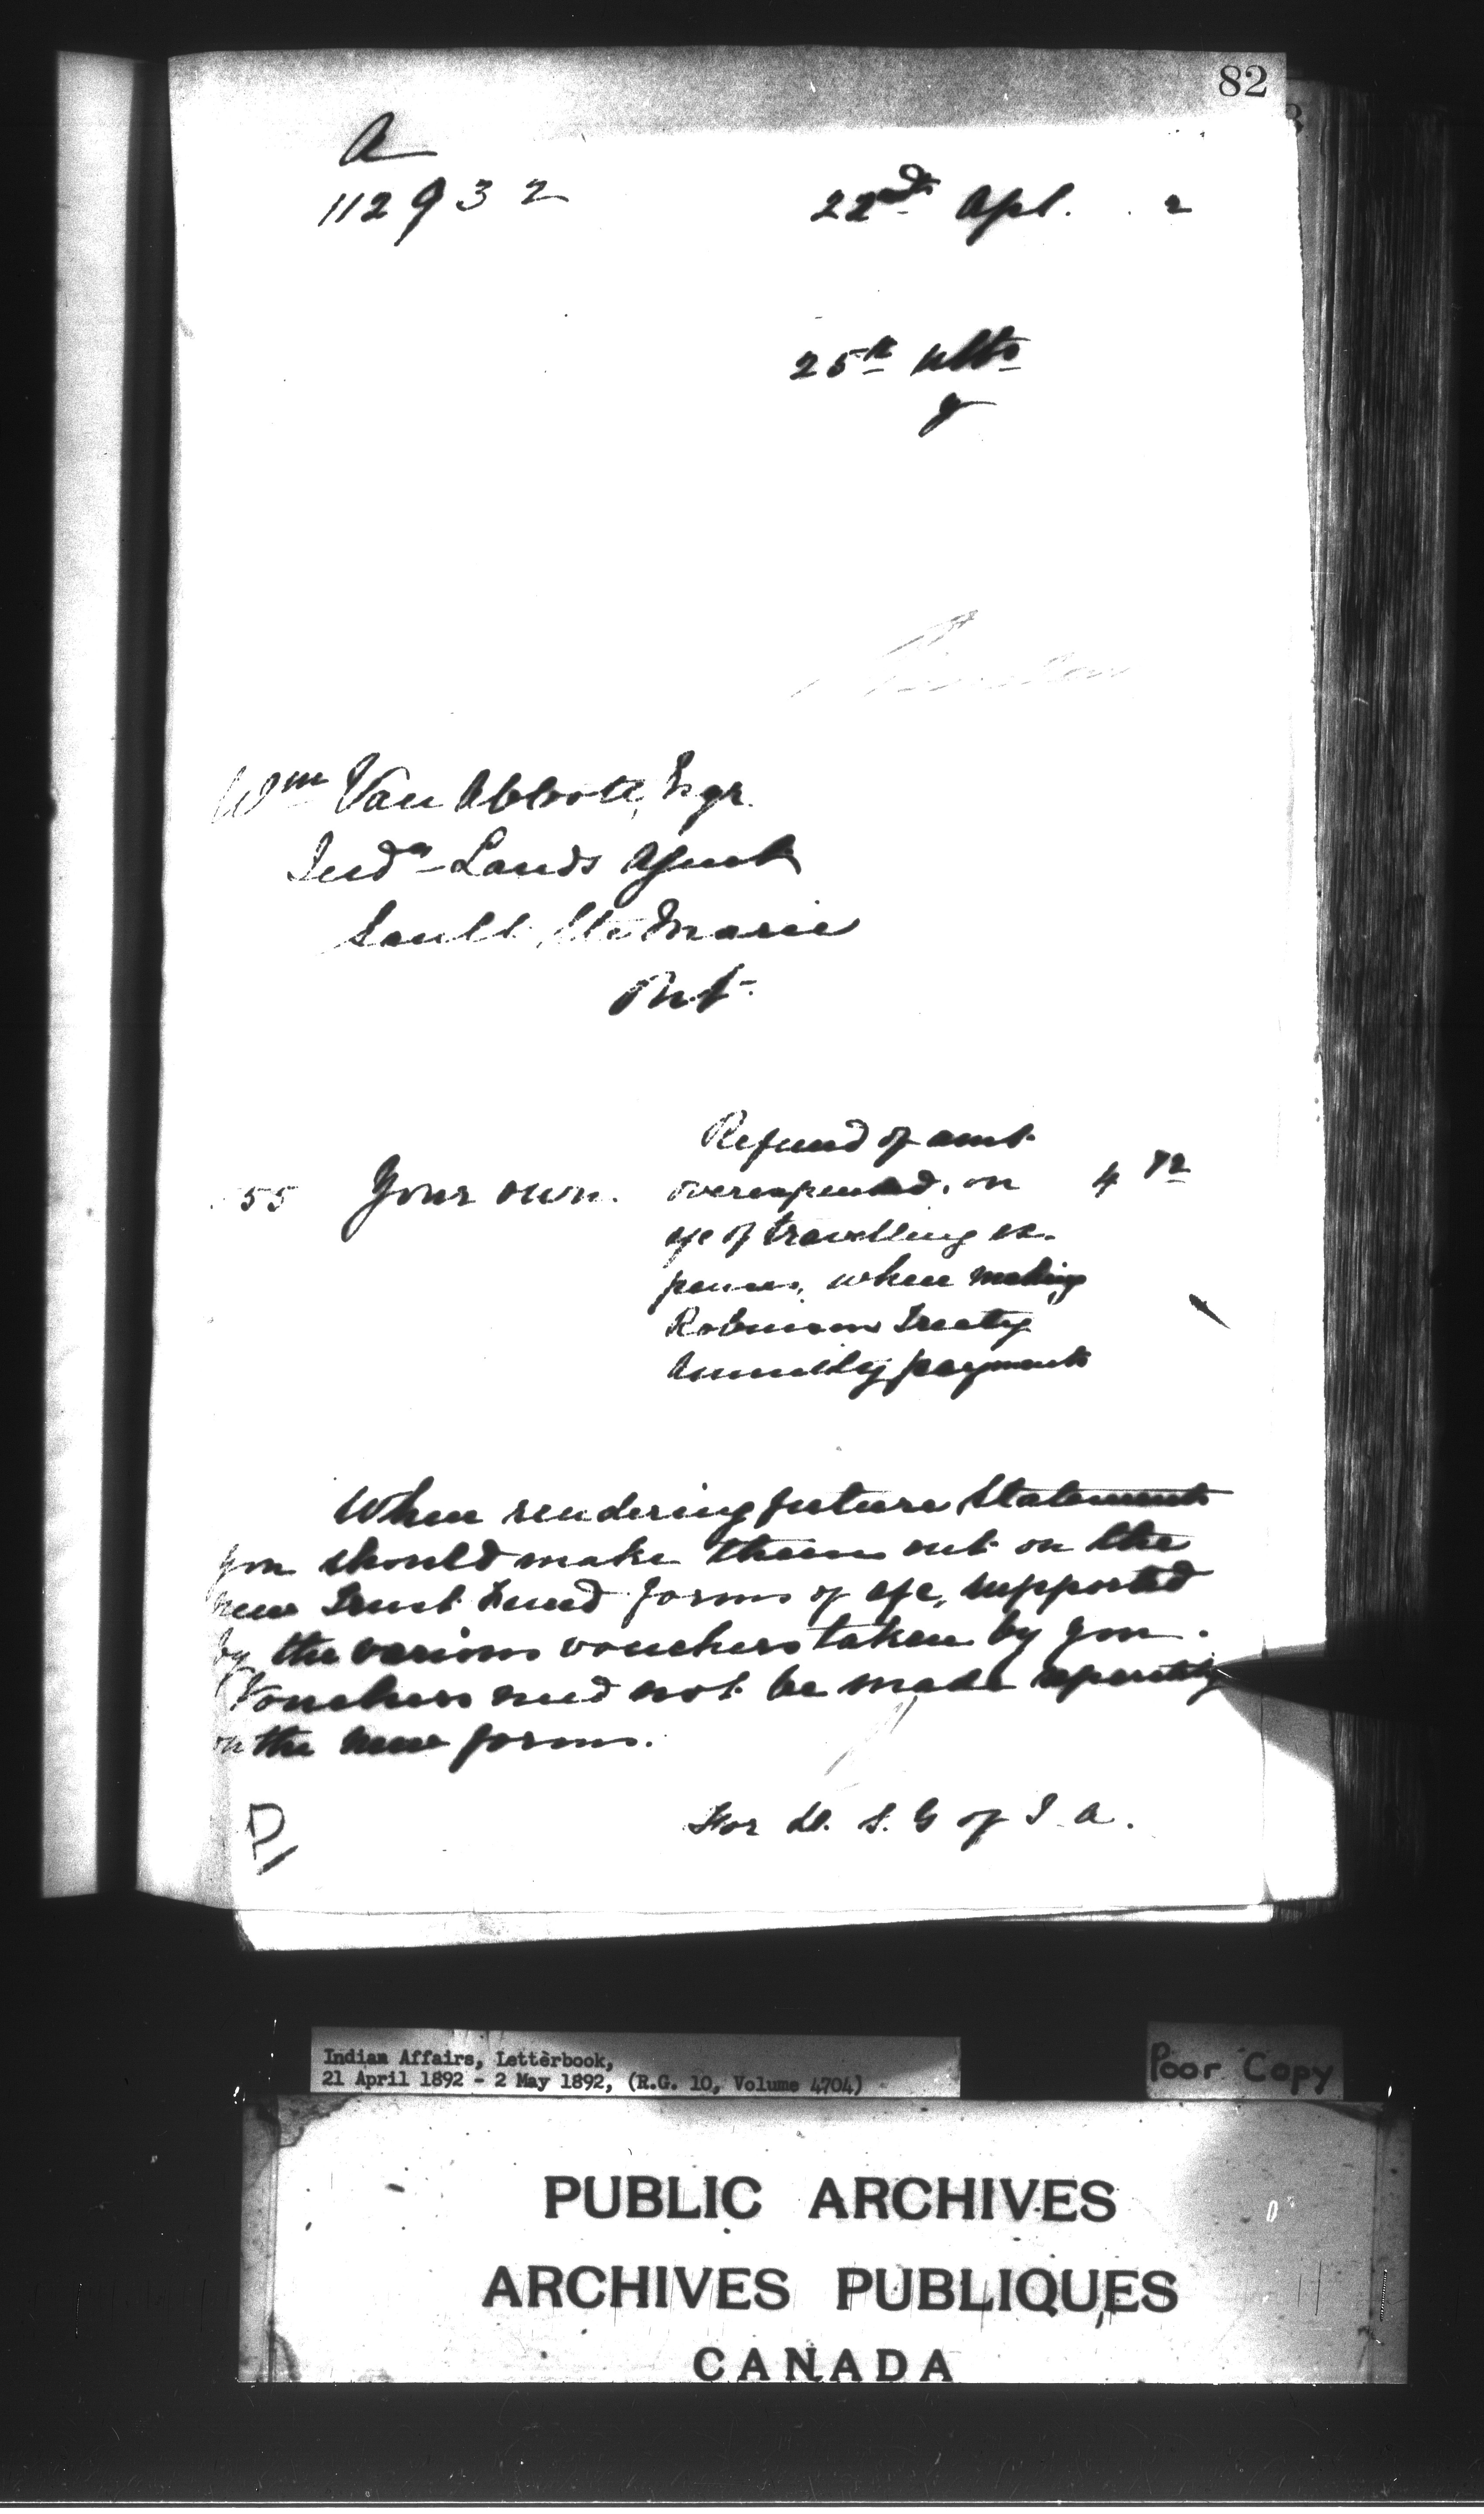 82
A
112932
22nd Apl. 2
25th ulto
Wm Van Abbott, Esqr.
Indn Lands Agent
Sault Ste Marie
Ont.
Refund of amt.
55 Your own. overexpended, on 4 72
a/c of travelling ex-
penses, when making
Robinson Treaty
Annuity payments
When rendering future Statements
you should make them out on the
new Trust Fund forms of a/c, supported
by the various vouchers taken by you.
Vouchers need not be made separately
on the new forms.
For D. S. G of I. A.
Indian Affairs, Letterbook,
21 April 1892 - 2 May 1892, (R.G. 10, Volume 4704)
Poor Copy
PUBLIC ARCHIVES
ARCHIVES PUBLIQUES
CANADA